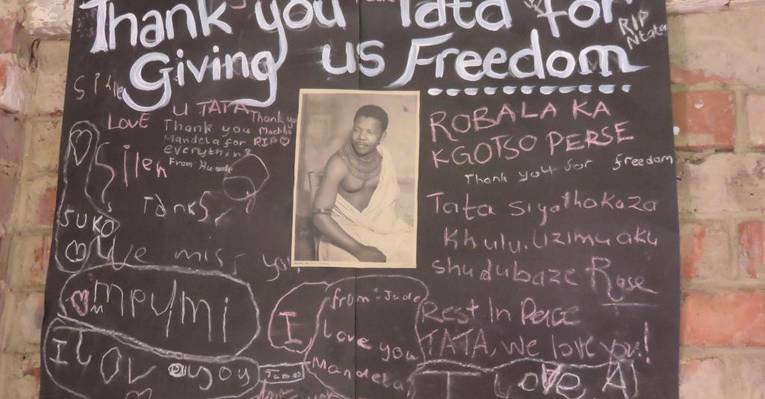 Thank you Tata for
Giving us Freedom
RIP
Ntate
LOVE U TATA
Thank you
Mandela for
everything
From
Thank you
Madiba
RIP
Sileh
Tanks
SUKO
We miss you
mpumi
I LOV you
James
I
from: Jude
Love you
Mandela
ROBALA KA
KGOTSO PERSE
Thank you for freedom
Tata siyathokoza
khulu. Uzimu aku
shudubaze Rose
Rest In Peace
TATA, we love you!